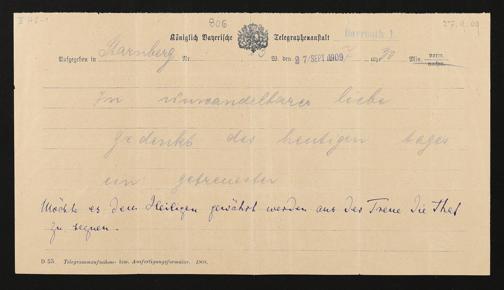 806
27.9.09
Königlich Bayerische Telegraphenanstalt
Bayreuth 1.
Aufgegeben in Starnberg Nr. W. den 27/SEPT 1909 7 Uhr 90 Min. vorm. nachm.
In unwandelbarer liebe
gedenkt des heutigen tages
ein getreuester
Möchte es dem Heiligen gewährt werden aus der Treue die That
zu segnen.
D 53 Telegrammaufnahme- bzw. Ausfertigungsformular. 1908.